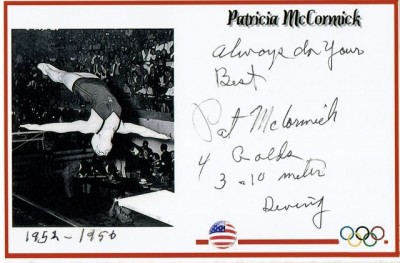 Patricia McCormick
Always do Your
Best
Pat McCormick
4 Golds
3 - 10 meter
Diving
1952 - 1956